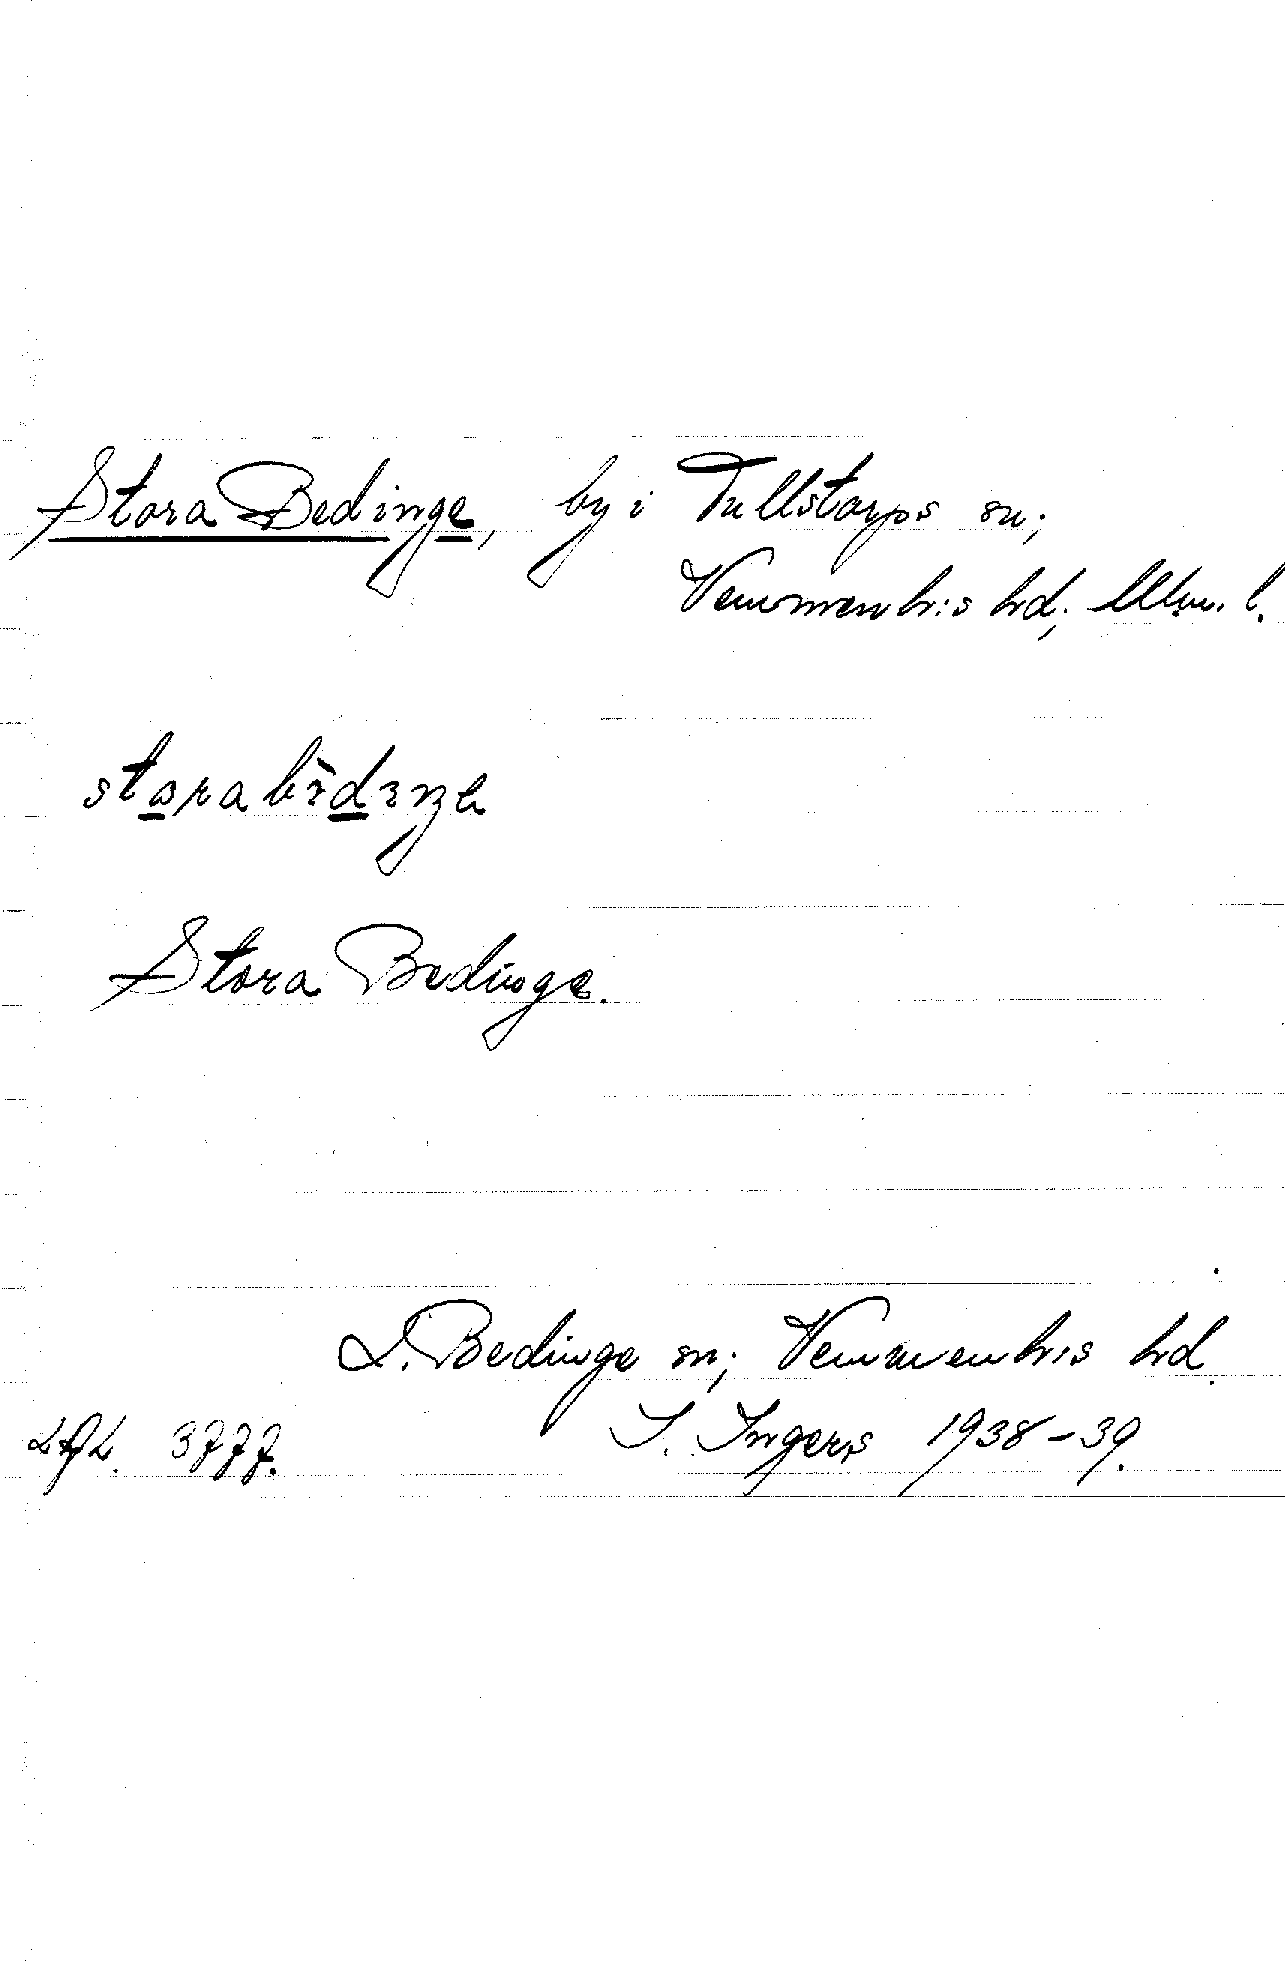 Stora Bedinge, by i Tullstorps sn;
Vemmenhis hd; Mlm. l.
Stora Bedinge.
L. Bedinge sn; Vemmenhis hd.
I. Ingers 1938-39.
LAL. 3777.